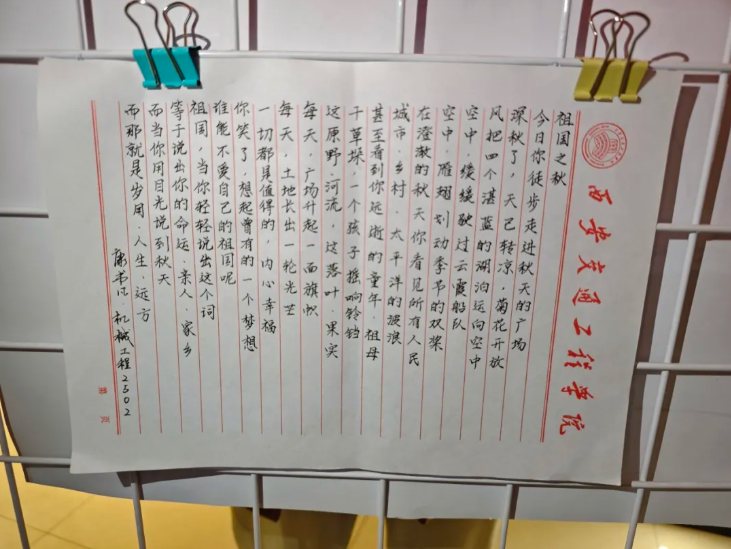 西安交通工程学院
祖国之秋
今日你徒步走进秋天的广场
深秋了，天已转凉，菊花开放
风把四个湛蓝的湖泊运向空中
空中，缓缓驶过云霞船队
空中，雁翅划动季节的双桨
在澄澈的秋天你看见所有人民
城市、乡村、太平洋的波浪
甚至看到你远逝的童年、祖母
干草垛、一个孩子摇响铃铛
这原野、河流，这落叶、果实
每天，广场升起一面旗帜
每天，土地长出一轮光芒
一切都是值得的，内心幸福
你笑了，想起曾有的一个梦想
谁能不爱自己的祖国呢
祖国，当你轻轻说出这个词
等于说出你的命运、亲人、家乡
而当你用目光说到秋天
而那就是岁月、人生、远方
机械工程2502
第 页